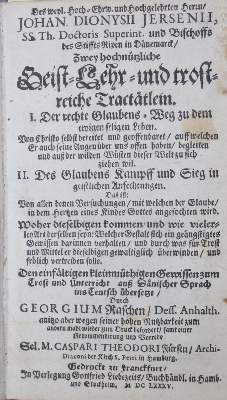 Des weyl. Hoch-Ehrw. und Hochgelehrten Herrn/
JOHAN. DIONYSII JERSENII,
SS. Th. Doctoris Superint. und Bischoffs
des Stiffts Riren in Dänemarck/
Zwey hochnützliche
Geist-Lehr-und trost-
reiche Tractätlein.
I. Der rechte Glaubens-Weg zu dem
ewigen seligen Leben.
Von Christo selbst bereitet und geoffenbaret/ auff welchen
Er auch seine Augen über uns offen haben/ begleiten
und auß der wilden Wüsten dieser Welt zu sich
ziehen wil.
II. Des Glaubens Kampff und Sieg in
geistlichen Anfechtungen.
Das ist:
Von allen denen Versuchungen/ mit welchen der Glaube/
in dem Hertzen eines Kindes Gottes angefochten wird.
Woher dieselbigen kommen und wie vieler-
ley Art derselben seyn: Welcher Gestalt sich ein geängstigtes
Gewissen darinnen verhalten/ und durch was für Trost
und Mittel er dieselbigen gewaltiglich überwinden/ und
frölich vertreiben solle.
Den einfältigen kleinmüthigen Gewissen zum
Trost und Unterricht auß Dänischer Sprach
ins Teutsch übersetzt/
Durch
GEORGIUM Raschen/ Dess. Anhalt.
anitzo aber wegen seiner hohen Nutzbarkeit zum
andern mahl wieder zum Druck befodert/ samt einer
und Vorrede
Sel. M. CASPARI THEODORI Fürsen/ Archi-
Diaconi der Kirch S. Petri in Hamburg.
Gedruckt zu Franckfurt/
In Verlegung Gottfried Liebezeits/ Buchhändl. in Hamb.
und Stockholm. M DC LXXXV.